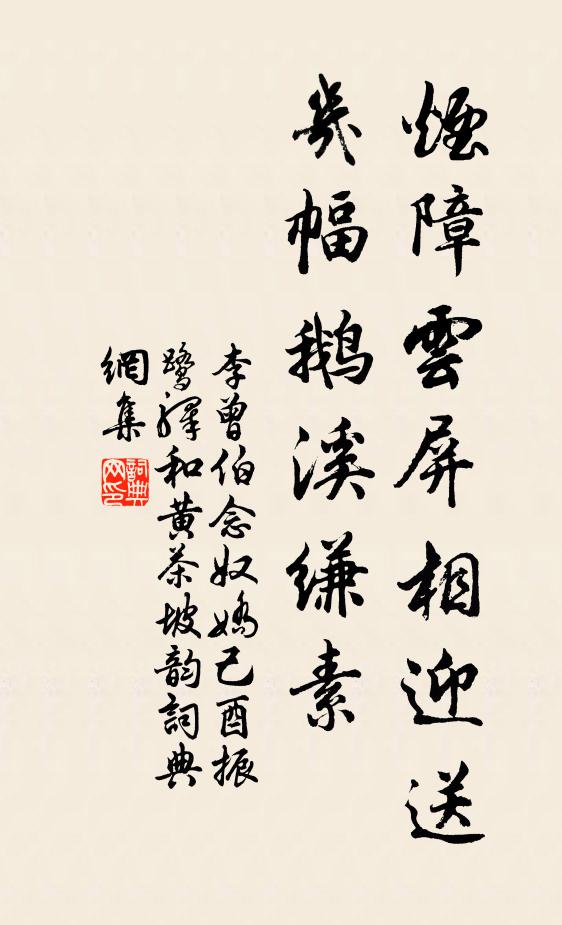 煙障雲屏相迎送
幾幅鵝溪縑素
李曾伯念奴嬌己酉振
鷺驛和黄茶坡韵詞典
網集
詞典
网印